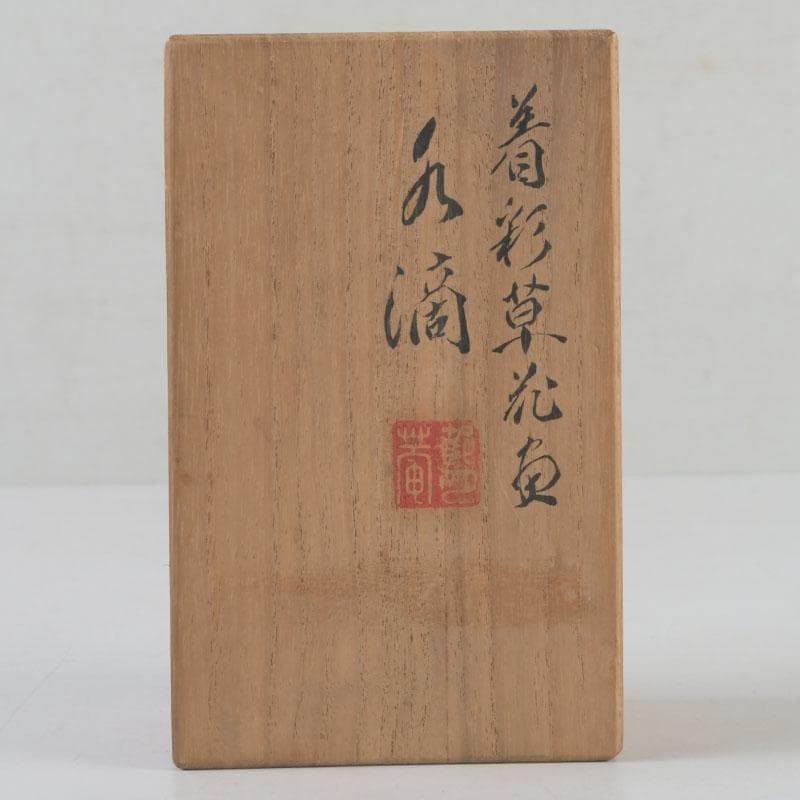 着彩草花画
水滴